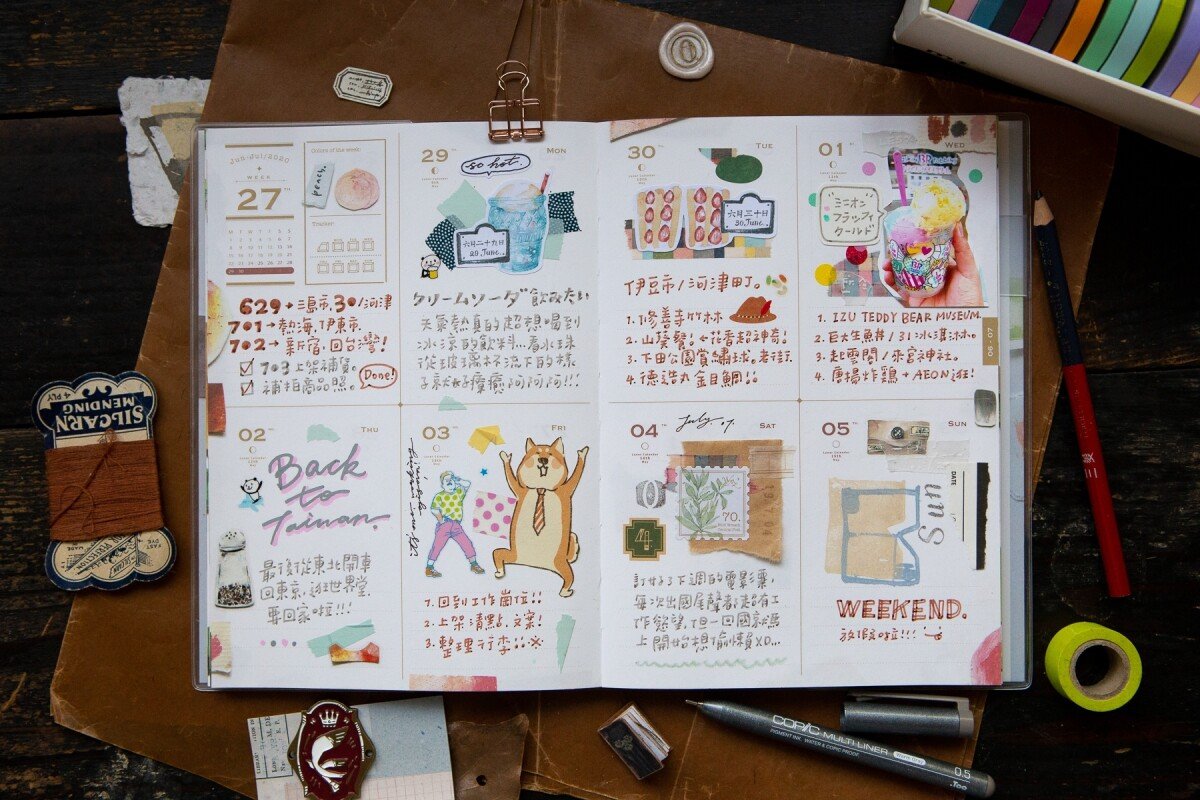 Jun-Jul/2020
WEEK
27TH
Colors of the week:
peach.
Tracker:
M T W T F S S
629→三島市.30/河津
701→熱海.伊東市.
702→新宿.回台灣!
703上架補貨.
補拍商品照.
Done!
29TH
MON
so hot.
六月二十九日
29.June.
クリームソーダ飲みたい
天氣熱真的超想喝到
冰涼的飲料...看水珠
從玻璃杯流下的樣
子就好療癒阿阿阿!!!
30TH
TUE
六月三十日
30.June.
伊豆市/河津町。
1. 修善寺竹林
2. 山葵餐!←花香超神奇!
3. 下田公園賞繡球。老街
4. 德造丸金目鯛!!
01ST
WED
ミニオン
フラッフィ
ワールド
1. IZU TEDDY BEAR MUSEUM
2. 巨大生魚丼/31冰淇淋。
3. 起雲閣/來宮神社。
4. 唐揚炸雞+AEON逛!
06-07
02ND
THU
Back
to
Taiwan.
最後從東北開車
回東京,逛世界堂.
要回家啦!!!
03RD
FRI
1. 回到工作崗位!!
2. 上架清點.文案!
3. 整理行李::※
04TH
SAT
July.
70.
訂好了下週的電影票,
每次出國尾聲都超有工
作慾望,但一回國就馬
上開始想偷懶XD...
05TH
SUN
DATE
Sun
WEEKEND.
放假啦!!!
SILCARN
MENDING
4 PLY
FAST DYE
MADE
三菱
COPIC MULTI LINER
PIGMENT INK WATER & COPIC PROOF
0.5
.Too